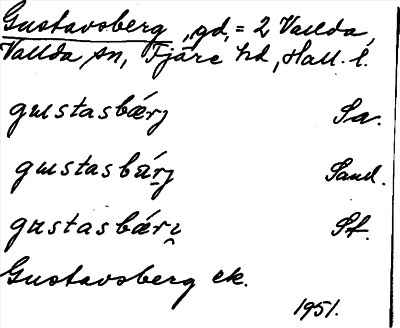 Gustavsberg, gd, = 2 Vallda,
Vallda sn, Fjäre hd, Hall. l.
gustasbærj Sa.
gustasbärj Sand.
gustasbärj St.
Gustavsberg ek.
1951.